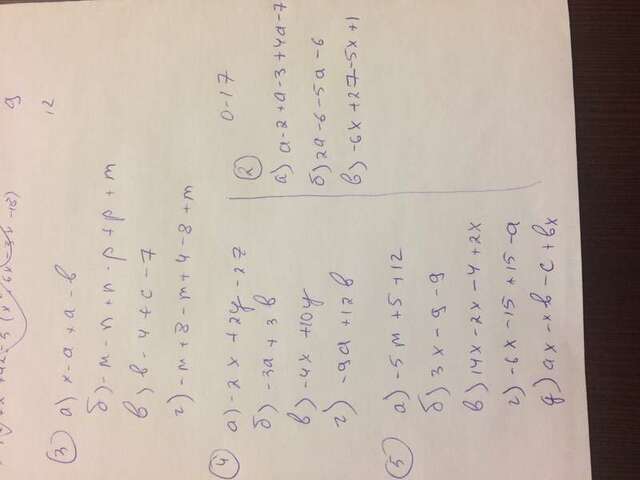 9
12
3 а) x - a + a - b
б) - m - n + n - p + p + m
в) b - 4 + c - 7
г) - m + 8 - m + 4 - 8 + m
4 а) - 2x + 2y - 2z
б) - 3a + 3b
в) - 4x + 10y
г) - 9a + 12b
5 а) - 5m + 5 + 12
б) 3x - 9 - 9
в) 14x - 2x - 4 + 2x
г) - 6x - 15 + 15 - a
д) ax - xb - c + bx
0-17
2
а) a - 2 + a - 3 + 4a - 7
б) 2a - 6 - 5a - 6
в) - 6x + 27 - 5x + 1